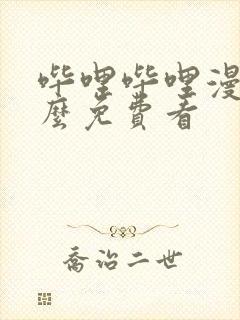 哔哩哔哩漫
麼免費看
乔治二世